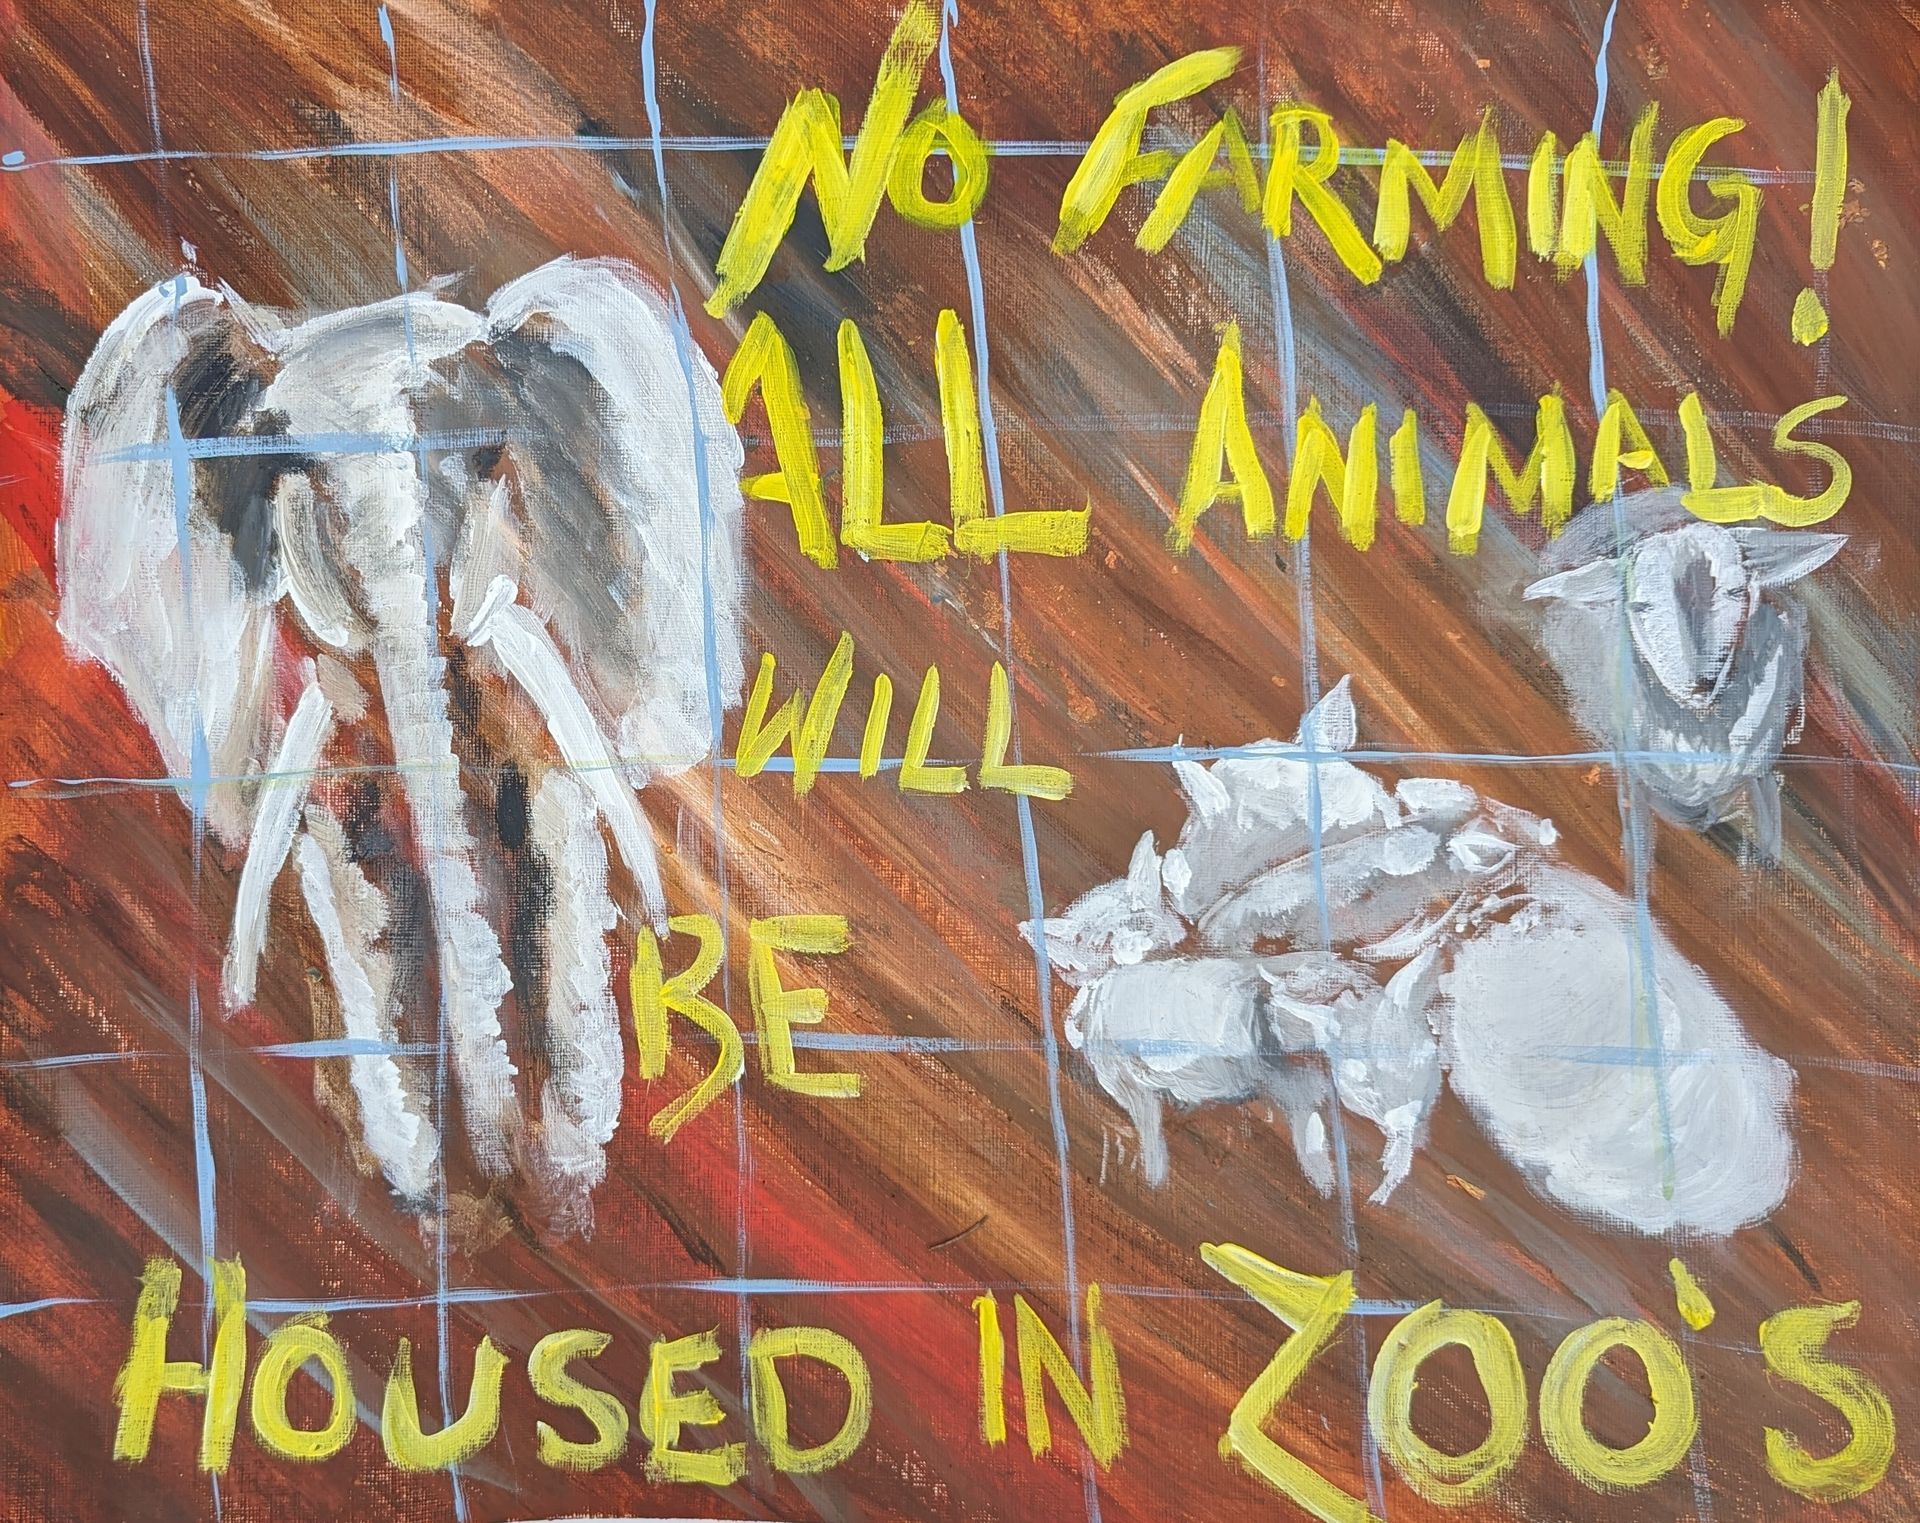 No FARMING!
ALL ANIMALS
WILL
BE
HOUSED IN ZOO'S